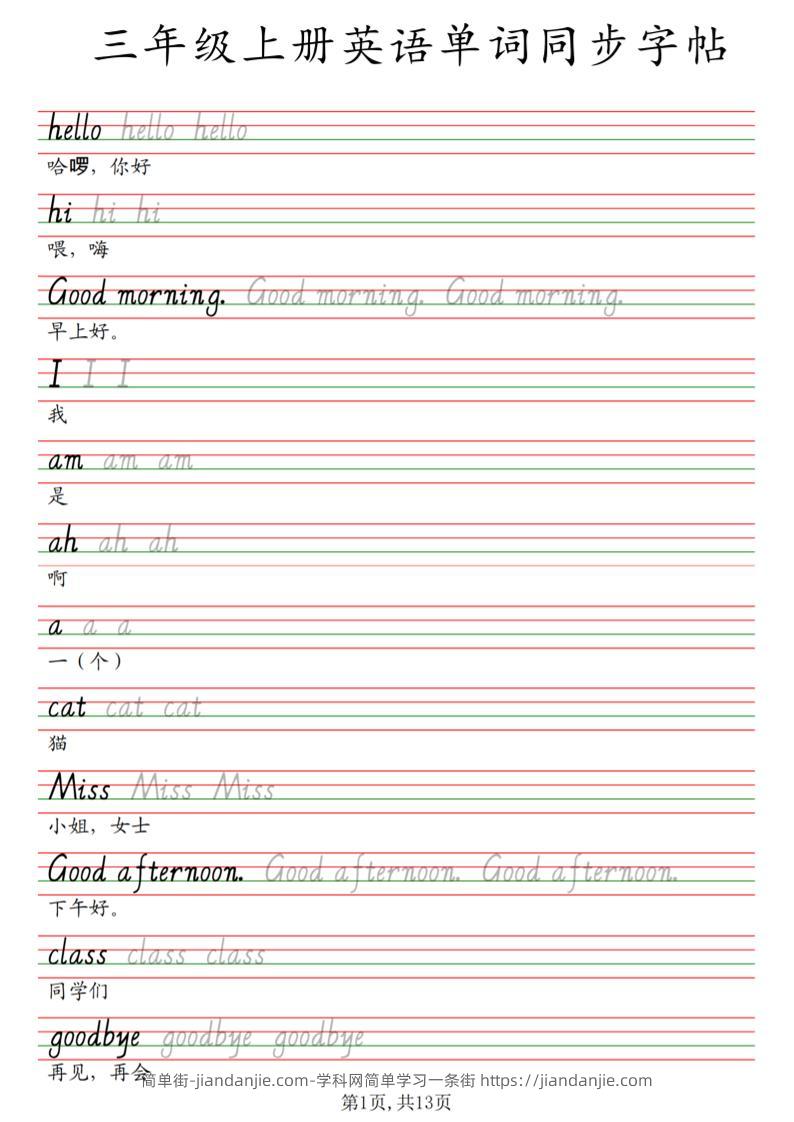 三年级上册英语单词同步字帖
hello hello hello
哈啰，你好
hi hi hi
喂，嗨
Good morning. Good morning. Good morning.
早上好。
I I I
我
am am am
是
ah ah ah
啊
a a a
一（个）
cat cat cat
猫
Miss Miss Miss
小姐，女士
Good afternoon. Good afternoon. Good afternoon.
下午好。
class class class
同学们
goodbye goodbye goodbye
再见，再会
简单街-jiandanjie.com-学科网简单学习一条街 https://jiandanjie.com
第1页,共13页